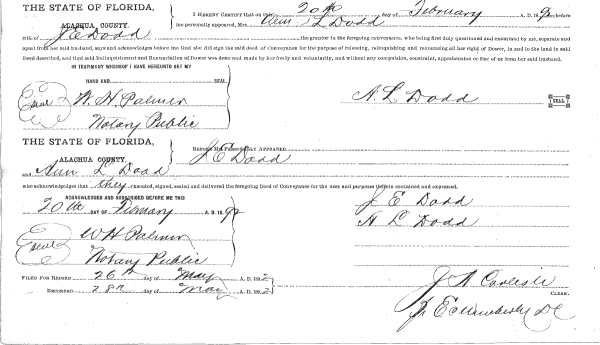 THE STATE OF FLORIDA,
ALACHUA COUNTY.
I HEREBY CERTIFY that on this 20th day of February A. D. 189 before
me personally appeared, Mrs. Ann L Dodd
wife of J E Dodd the grantor in the foregoing conveyance, who being first duly questioned and examined by me, separate and
apart from her said husband, says and acknowledges before me that she did sign the said deed of Conveyance for the purpose of releasing, relinquishing and renouncing all her right of Dower, in and to the land in said
Deed described, and that said Relinquishment and Renunciation of Dower was done and made by her freely and voluntarily, and without any compulsion, constraint, apprehension or fear of or from her said husband.
IN TESTIMONY WHEREOF I HAVE HEREUNTO SET MY
HAND AND SEAL
W. H. Palmer
Notary Public
A. L Dodd SEAL
THE STATE OF FLORIDA,
ALACHUA COUNTY.
BEFORE ME PERSONALLY APPEARED J E Dodd
and Ann L Dodd
who acknowledges that they executed, signed, sealed and delivered the foregoing Deed of Conveyance for the uses and purposes therein contained and expressed.
ACKNOWLEDGED AND SUBSCRIBED BEFORE ME THIS
20th DAY OF February A. D. 1892
W H Palmer
Notary Public
J E Dodd
A L Dodd
FILED FOR RECORD 26th day of May A. D. 1892
RECORDED 28th day of May A. D. 1892
CLERK.
D C